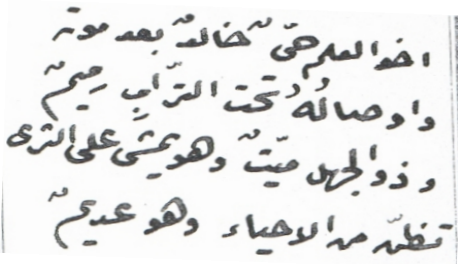 اخو العلم حيٌّ خالدٌ بعد موته
واوصالُهُ تحت الترّابِ رميمٌ
وذو الجهل ميّتٌ وهو يمشي على الثرى
تظنّ من الاحياء وهو عديمٌ